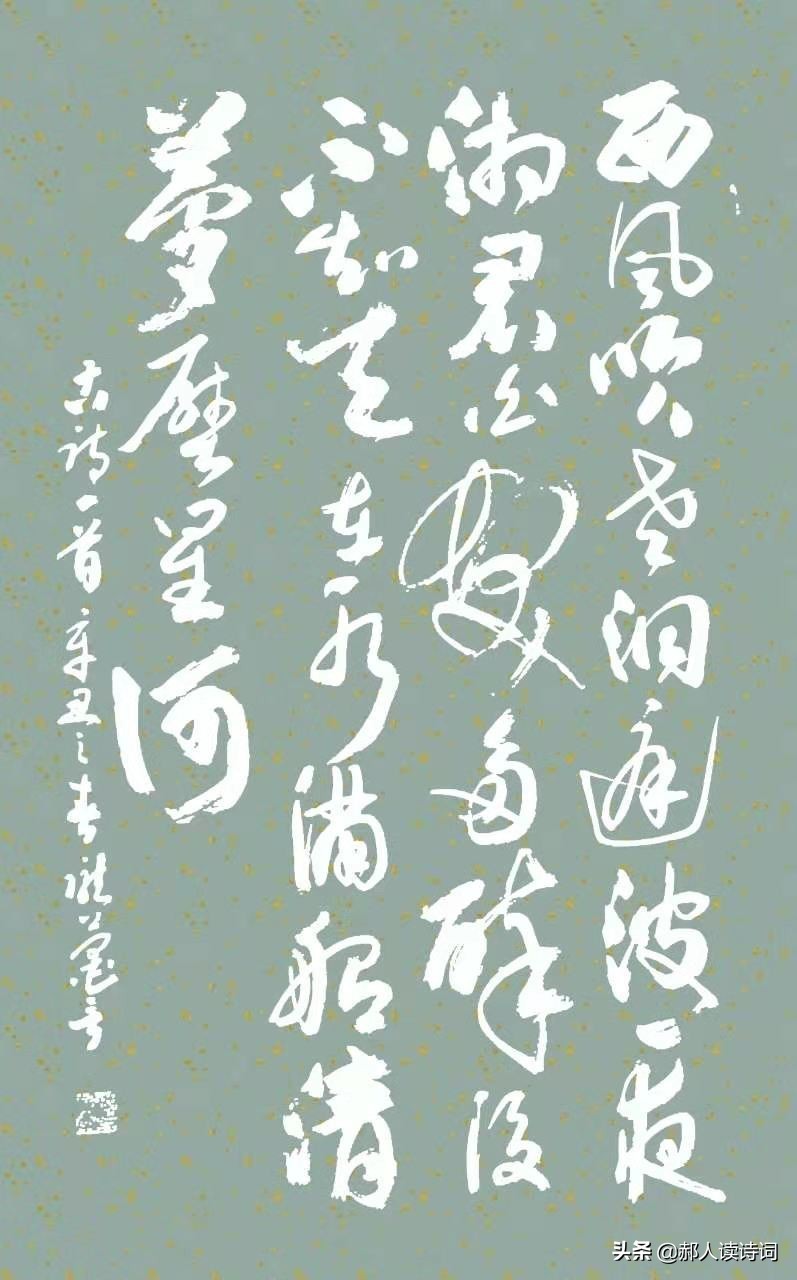 西風吹老洞庭波一夜
湘君白髮多醉後
不知天在水滿船清
夢壓星河
古詩一首辛丑之春
头条 @郝人读诗词